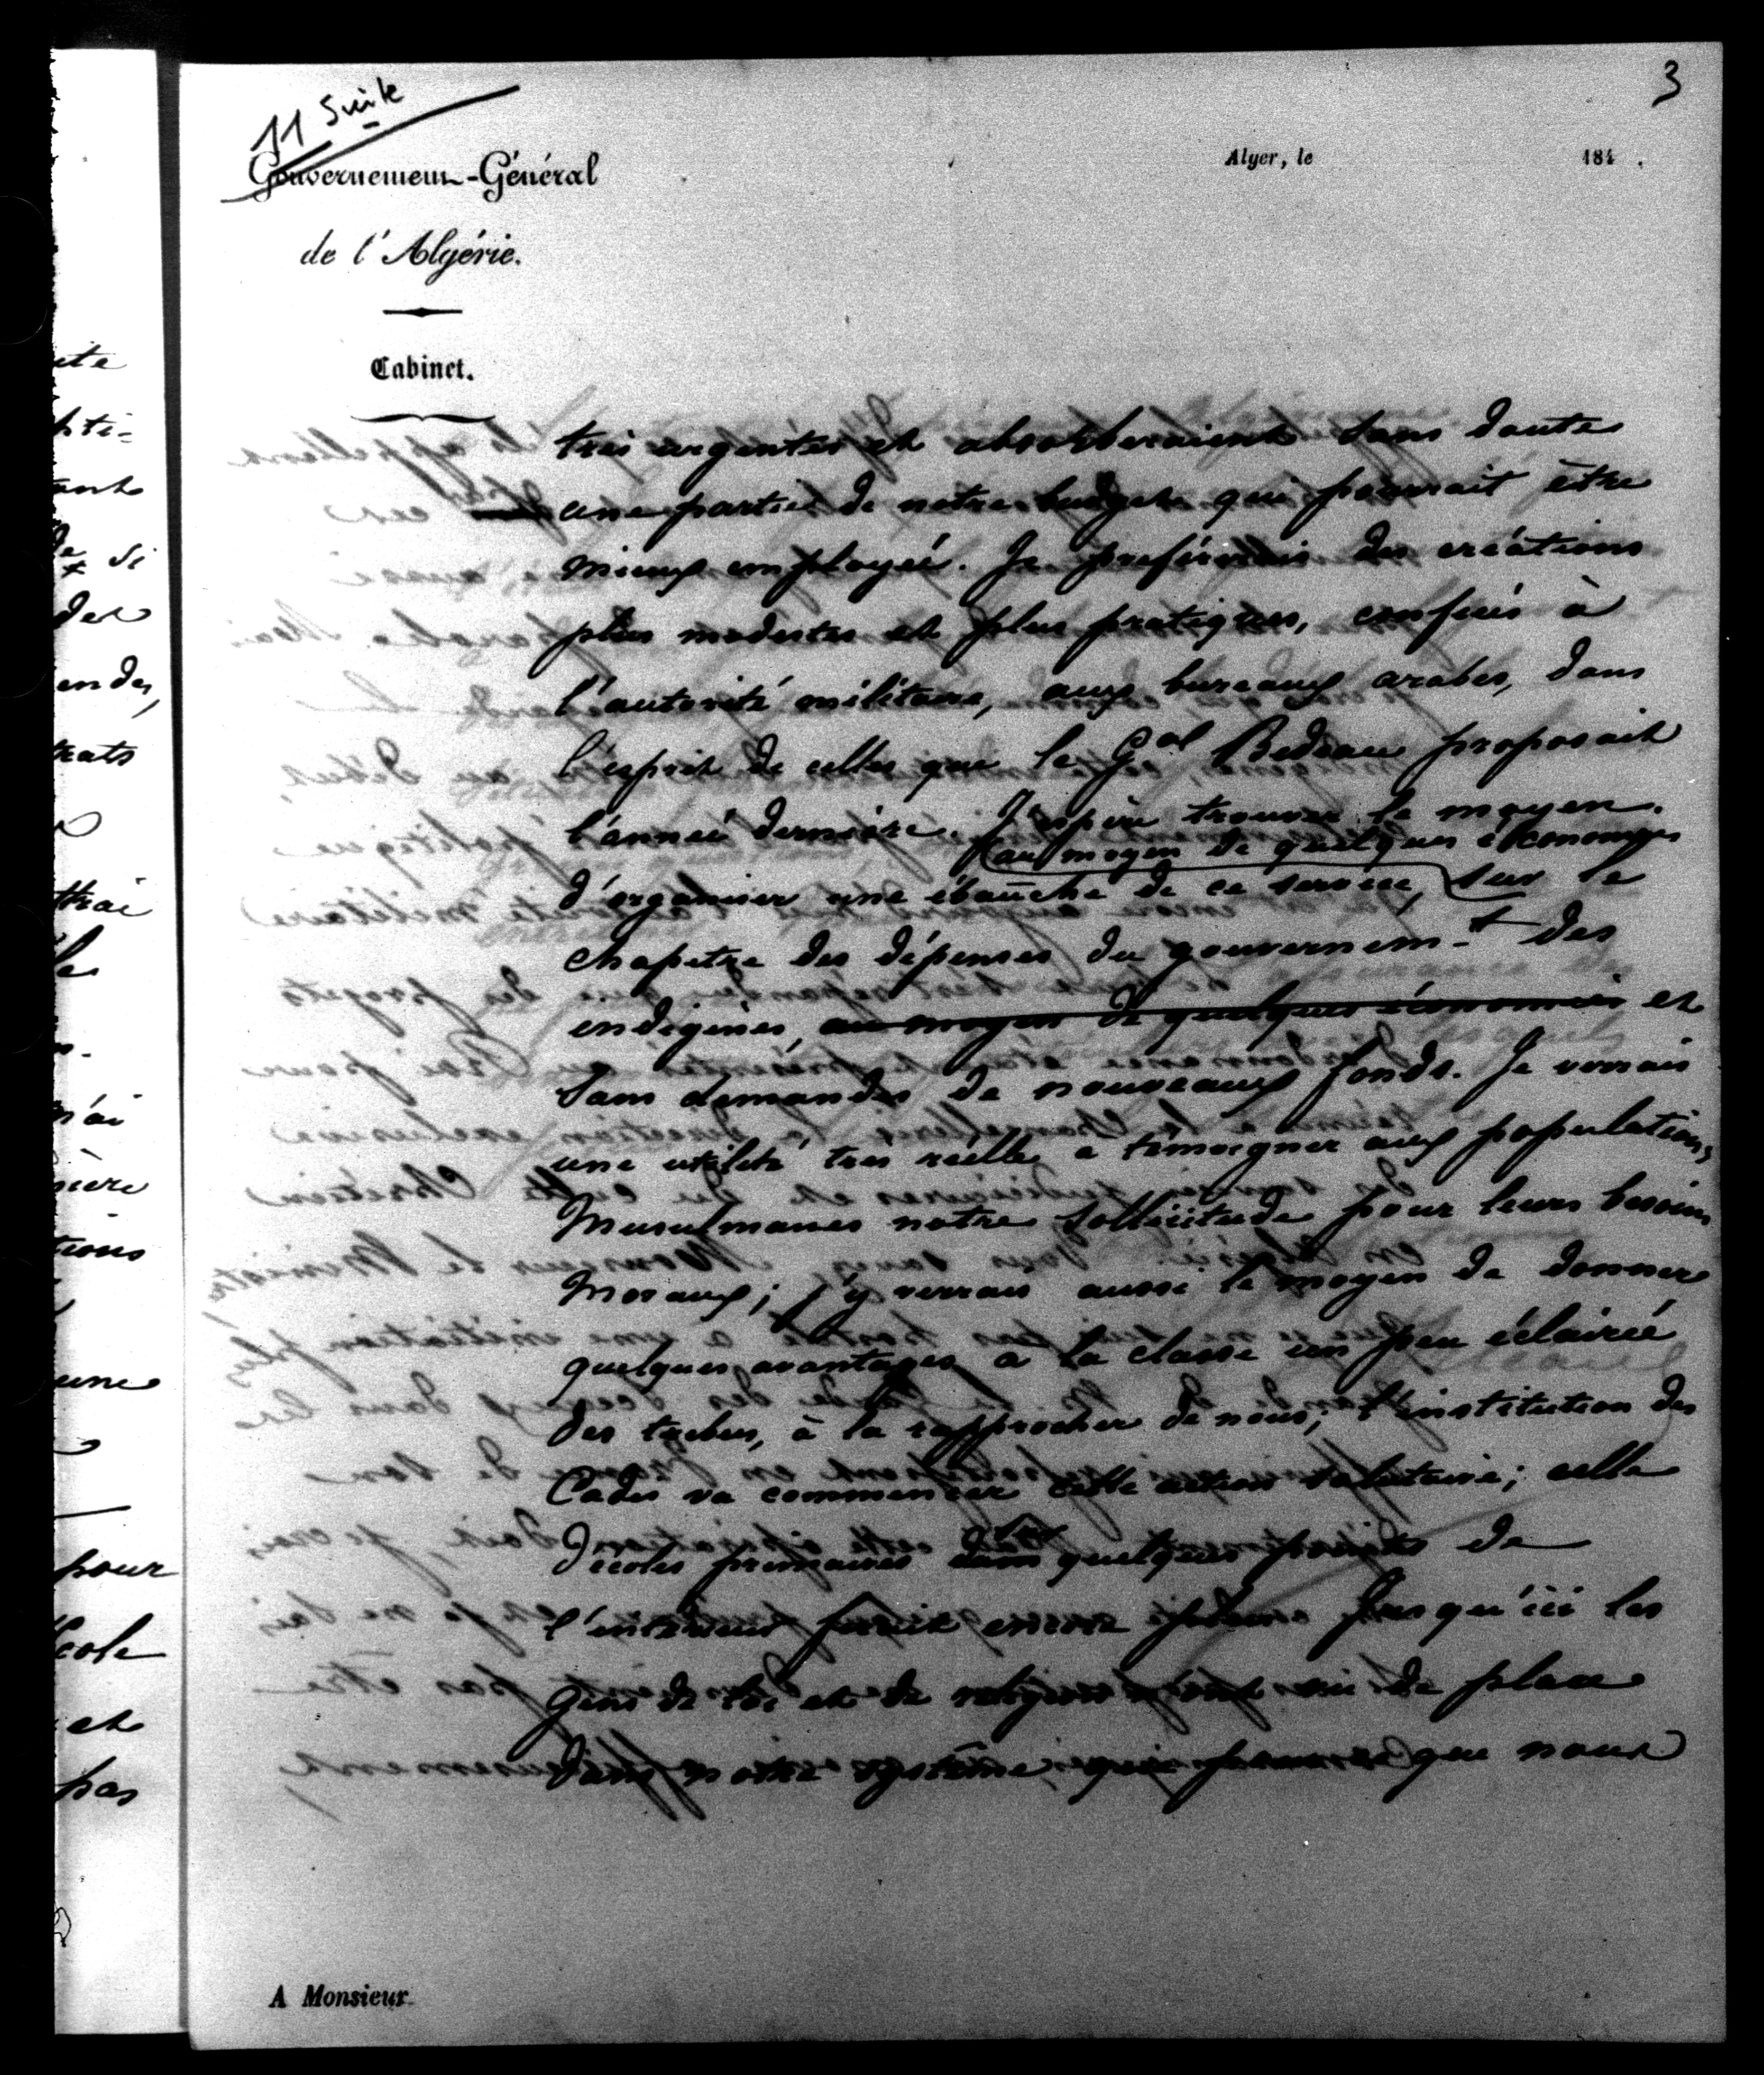 3
11 Suite
Gouvernement-Général
de l'Algérie.
Cabinet.
Alger, le 184 .
très urgentes et absorberaient sans doute
une partie de notre budget qui pourrait être
mieux employée. Je préférerais des créations
plus modestes et plus pratiques, confiées à
l'autorité militaire, aux bureaux arabes, dans
l'esprit de celles que le Gal Bedeau proposait
l'année dernière. J'espère trouver le moyen
au moyen de quelques économies
d'organiser une ébauche de ce service, sur le
chapitre des dépenses du gouvernem-t des
indigènes, au moyen de quelques économies et
sans demander de nouveaux fonds. Je verrais
une utilité très réelle à témoigner aux populations
Musulmanes notre sollicitude pour leurs besoins
moraux; j'y verrais aussi le moyen de donner
quelques avantages à la classe un peu éclairée
des tribus, à la rapprocher de nous; l'institution des
Cadis va commencer cette action salutaire; celle
d'écoles primaires dans quelques points de
l'intérieur ferait encore plus. Jusqu'ici les
gens de loi et de religion n'ont eu de place
dans notre système que nous
A Monsieur
ite
pti-
ant
de si
des
endes,
trats
le
n'ai
ière
tions
une
pour
école
et
pas